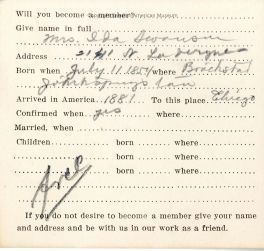 Will you become a member
Give name in full
Mrs. Ida Swanson
Address 2141 N La
Born when July 11 1854 where
Arrived in America 1881 To this place Chicago
Confirmed when yes where
Married, when
Children born where
born where
born where
born where
If you do not desire to become a member give your name
and address and be with us in our work as a friend.